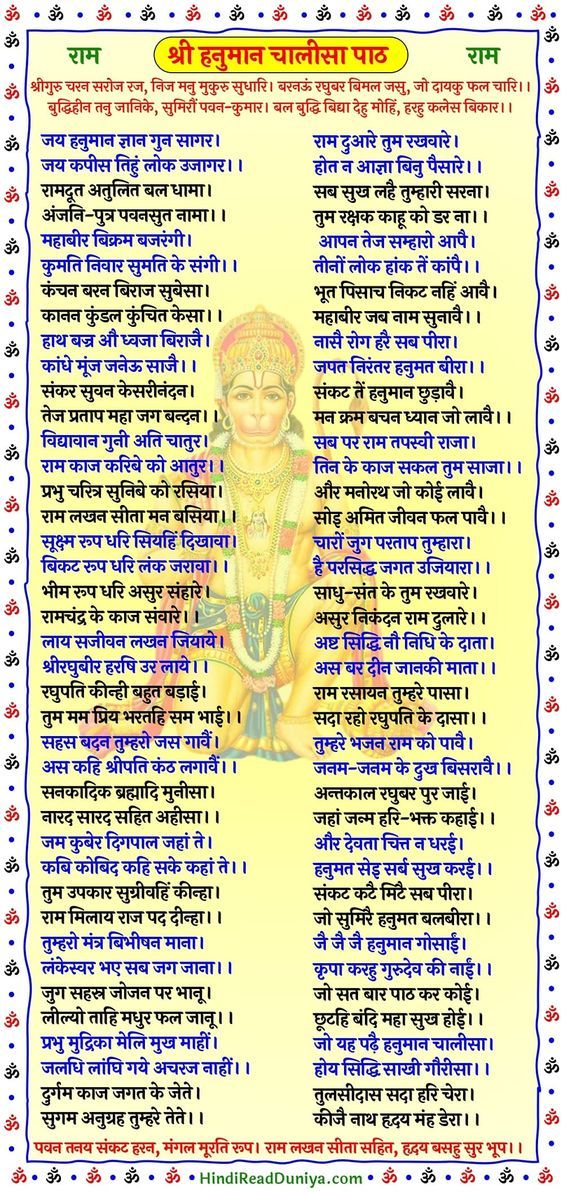 राम
श्री हनुमान चालीसा पाठ
राम
श्रीगुरु चरन सरोज रज, निज मनु मुकुरु सुधारि। बरनऊं रघुबर बिमल जसु, जो दायकु फल चारि।।
बुद्धिहीन तनु जानिके, सुमिरौं पवन-कुमार। बल बुद्धि बिद्या देहु मोहिं, हरहु कलेस बिकार।।
जय हनुमान ज्ञान गुन सागर।
जय कपीस तिहुं लोक उजागर।।
रामदूत अतुलित बल धामा।
अंजनि-पुत्र पवनसुत नामा।।
महाबीर बिक्रम बजरंगी।
कुमति निवार सुमति के संगी।।
कंचन बरन बिराज सुबेसा।
कानन कुंडल कुंचित केसा।।
हाथ बज्र औ ध्वजा बिराजै।
कांधे मूंज जनेऊ साजै।।
संकर सुवन केसरीनंदन।
तेज प्रताप महा जग बन्दन।।
विद्यावान गुनी अति चातुर।
राम काज करिबे को आतुर।।
प्रभु चरित्र सुनिबे को रसिया।
राम लखन सीता मन बसिया।।
सूक्ष्म रूप धरि सियहिं दिखावा।
बिकट रूप धरि लंक जरावा।।
भीम रूप धरि असुर संहारे।
रामचंद्र के काज संवारे।।
लाय सजीवन लखन जियाये।
श्रीरघुबीर हरषि उर लाये।।
रघुपति कीन्ही बहुत बड़ाई।
तुम मम प्रिय भरतहि सम भाई।।
सहस बदन तुम्हरो जस गावैं।
अस कहि श्रीपति कंठ लगावैं।।
सनकादिक ब्रह्मादि मुनीसा।
नारद सारद सहित अहीसा।।
जम कुबेर दिगपाल जहां ते।
कबि कोबिद कहि सके कहां ते।।
तुम उपकार सुग्रीवहिं कीन्हा।
राम मिलाय राज पद दीन्हा।।
तुम्हरो मंत्र बिभीषन माना।
लंकेस्वर भए सब जग जाना।।
जुग सहस्र जोजन पर भानू।
लील्यो ताहि मधुर फल जानू।।
प्रभु मुद्रिका मेलि मुख माहीं।
जलधि लांघि गये अचरज नाहीं।।
दुर्गम काज जगत के जेते।
सुगम अनुग्रह तुम्हरे तेते।।
राम दुआरे तुम रखवारे।
होत न आज्ञा बिनु पैसारे।।
सब सुख लहै तुम्हारी सरना।
तुम रक्षक काहू को डर ना।।
आपन तेज सम्हारो आपै।
तीनों लोक हांक तें कांपै।।
भूत पिसाच निकट नहिं आवै।
महाबीर जब नाम सुनावै।।
नासै रोग हरै सब पीरा।
जपत निरंतर हनुमत बीरा।।
संकट तें हनुमान छुड़ावै।
मन क्रम बचन ध्यान जो लावै।।
सब पर राम तपस्वी राजा।
तिन के काज सकल तुम साजा।।
और मनोरथ जो कोई लावै।
सोइ अमित जीवन फल पावै।।
चारों जुग परताप तुम्हारा।
है परसिद्ध जगत उजियारा।।
साधु-संत के तुम रखवारे।
असुर निकंदन राम दुलारे।।
अष्ट सिद्धि नौ निधि के दाता।
अस बर दीन जानकी माता।।
राम रसायन तुम्हरे पासा।
सदा रहो रघुपति के दासा।।
तुम्हरे भजन राम को पावै।
जनम-जनम के दुख बिसरावै।।
अन्तकाल रघुबर पुर जाई।
जहां जन्म हरि-भक्त कहाई।।
और देवता चित्त न धरई।
हनुमत सेइ सर्ब सुख करई।।
संकट कटै मिटै सब पीरा।
जो सुमिरै हनुमत बलबीरा।।
जै जै जै हनुमान गोसाईं।
कृपा करहु गुरुदेव की नाईं।।
जो सत बार पाठ कर कोई।
छूटहि बंदि महा सुख होई।।
जो यह पढ़ै हनुमान चालीसा।
होय सिद्धि साखी गौरीसा।।
तुलसीदास सदा हरि चेरा।
कीजै नाथ हृदय मंह डेरा।।
पवन तनय संकट हरन, मंगल मूरति रूप। राम लखन सीता सहित, हृदय बसहु सुर भूप।।
HindiReadDuniya.com